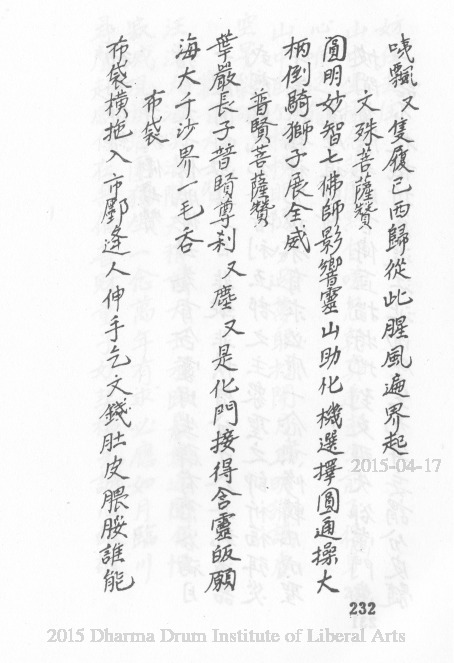 咦飄又隻履已西歸從此腥風遍界起
文殊菩薩贊
圓明妙智七佛師影響靈山助化機選擇圓通操大
柄倒騎獅子展全威
普賢菩薩贊
華嚴長子普賢尊刹又塵又是化門接得含靈皈願
海大千沙界一毛吞
布袋
布袋橫拖入市鄽逢人伸手乞文錢肚皮腲脮誰能
2015-04-17
232
2015 Dharma Drum Institute of Liberal Arts